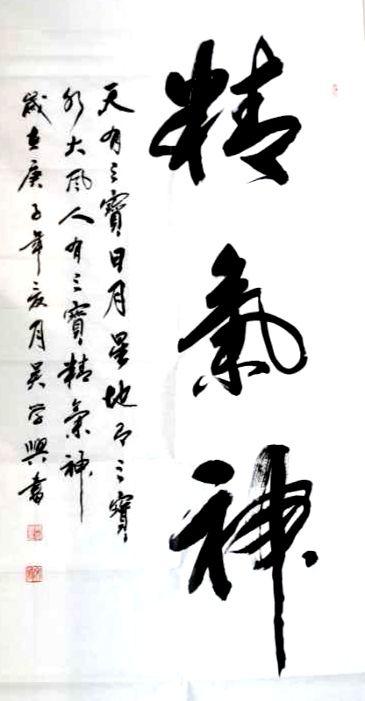 精氣神
天有三寶日月星地有三寶
水火風人有三寶精氣神
歲在庚子年亥月吴学興書